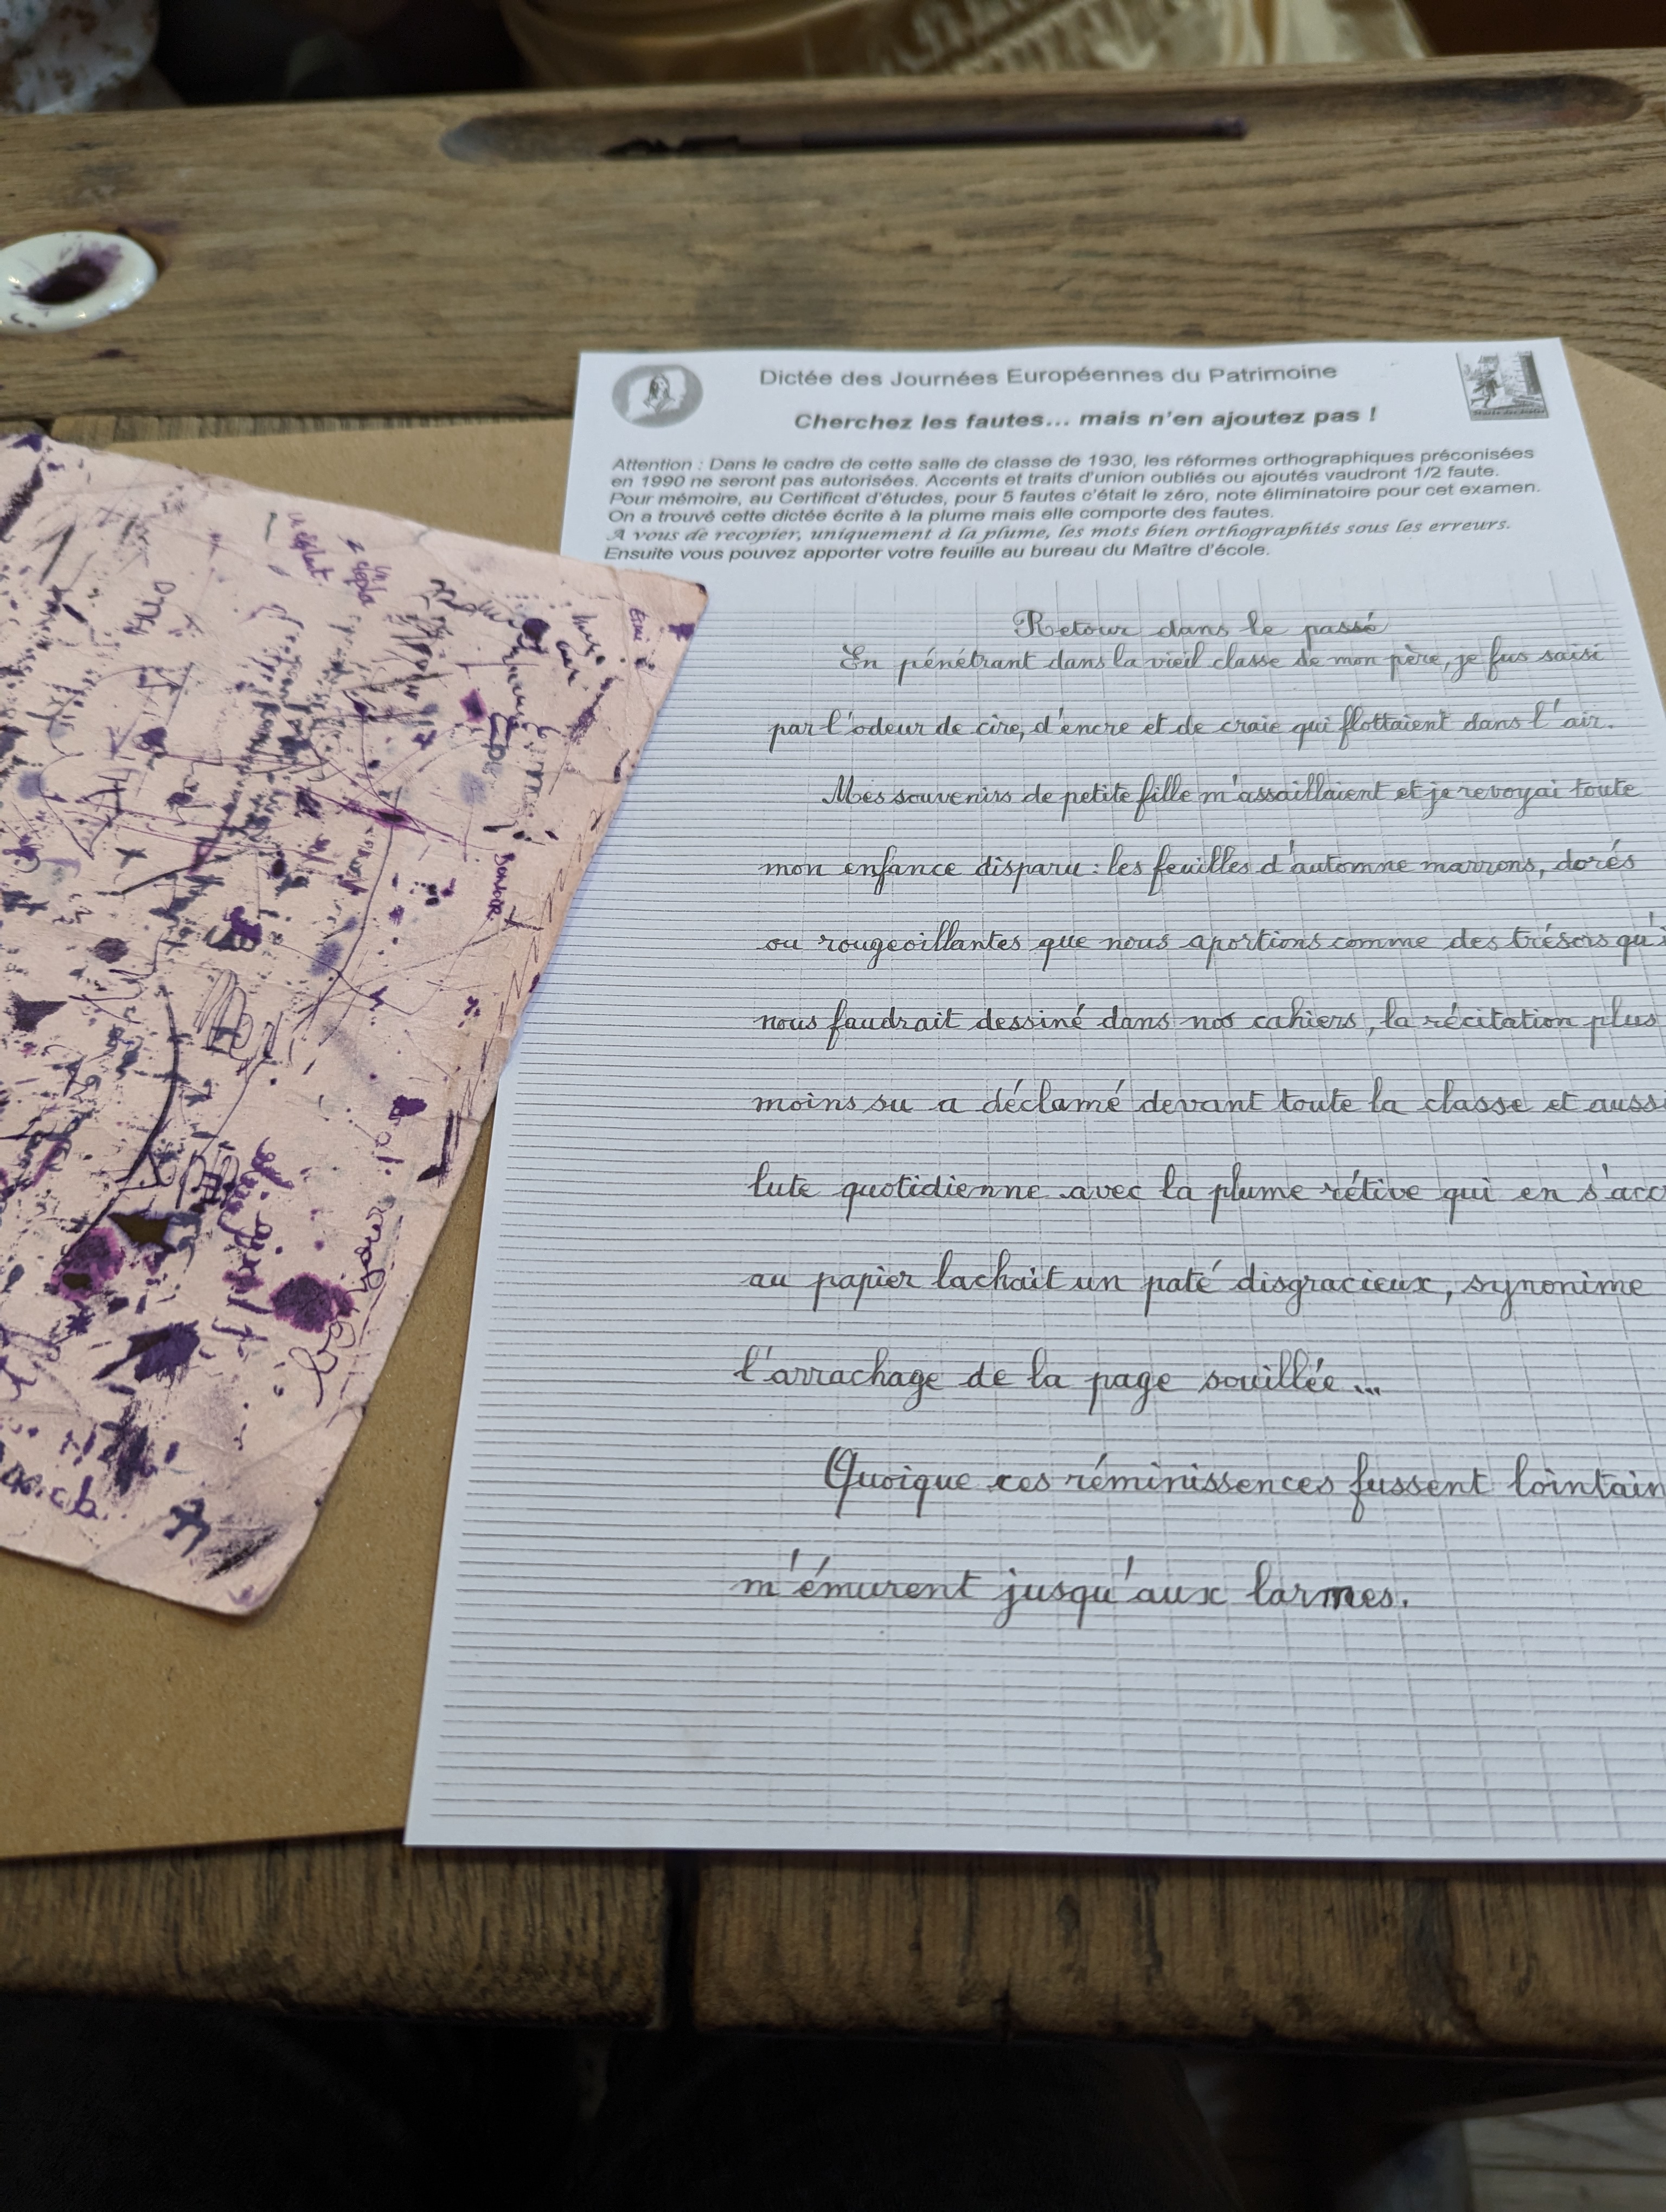 Dictée des Journées Européennes du Patrimoine
Cherchez les fautes... mais n'en ajoutez pas !
Attention : Dans le cadre de cette salle de classe de 1930, les réformes orthographiques préconisées
en 1990 ne seront pas autorisées. Accents et traits d'union oubliés ou ajoutés vaudront 1/2 faute.
Pour mémoire, au Certificat d'études, pour 5 fautes c'était le zéro, note éliminatoire pour cet examen.
On a trouvé cette dictée écrite à la plume mais elle comporte des fautes.
A vous de recopier, uniquement à la plume, les mots bien orthographiés sous les erreurs.
Ensuite vous pouvez apporter votre feuille au bureau du Maître d'école.
Retour dans le passé
En pénétrant dans la vieil classe de mon père, je fus saisi
par l'odeur de cire, d'encre et de craie qui flottaient dans l'air.
Mes souvenirs de petite fille m'assaillaient et je revoyai toute
mon enfance disparu : les feuilles d'automne marrons, dorés
ou rougeoillantes que nous aportions comme des trésors qu'i
nous faudrait dessiné dans nos cahiers, la récitation plus
moins su a déclamé devant toute la classe et aussi
lute quotidienne avec la plume rétive qui en s'acc
au papier lachait un paté disgracieux, synonime
l'arrachage de la page souillée...
Quoique ces réminissences fussent lointain
m'émurent jusqu'aux larmes.